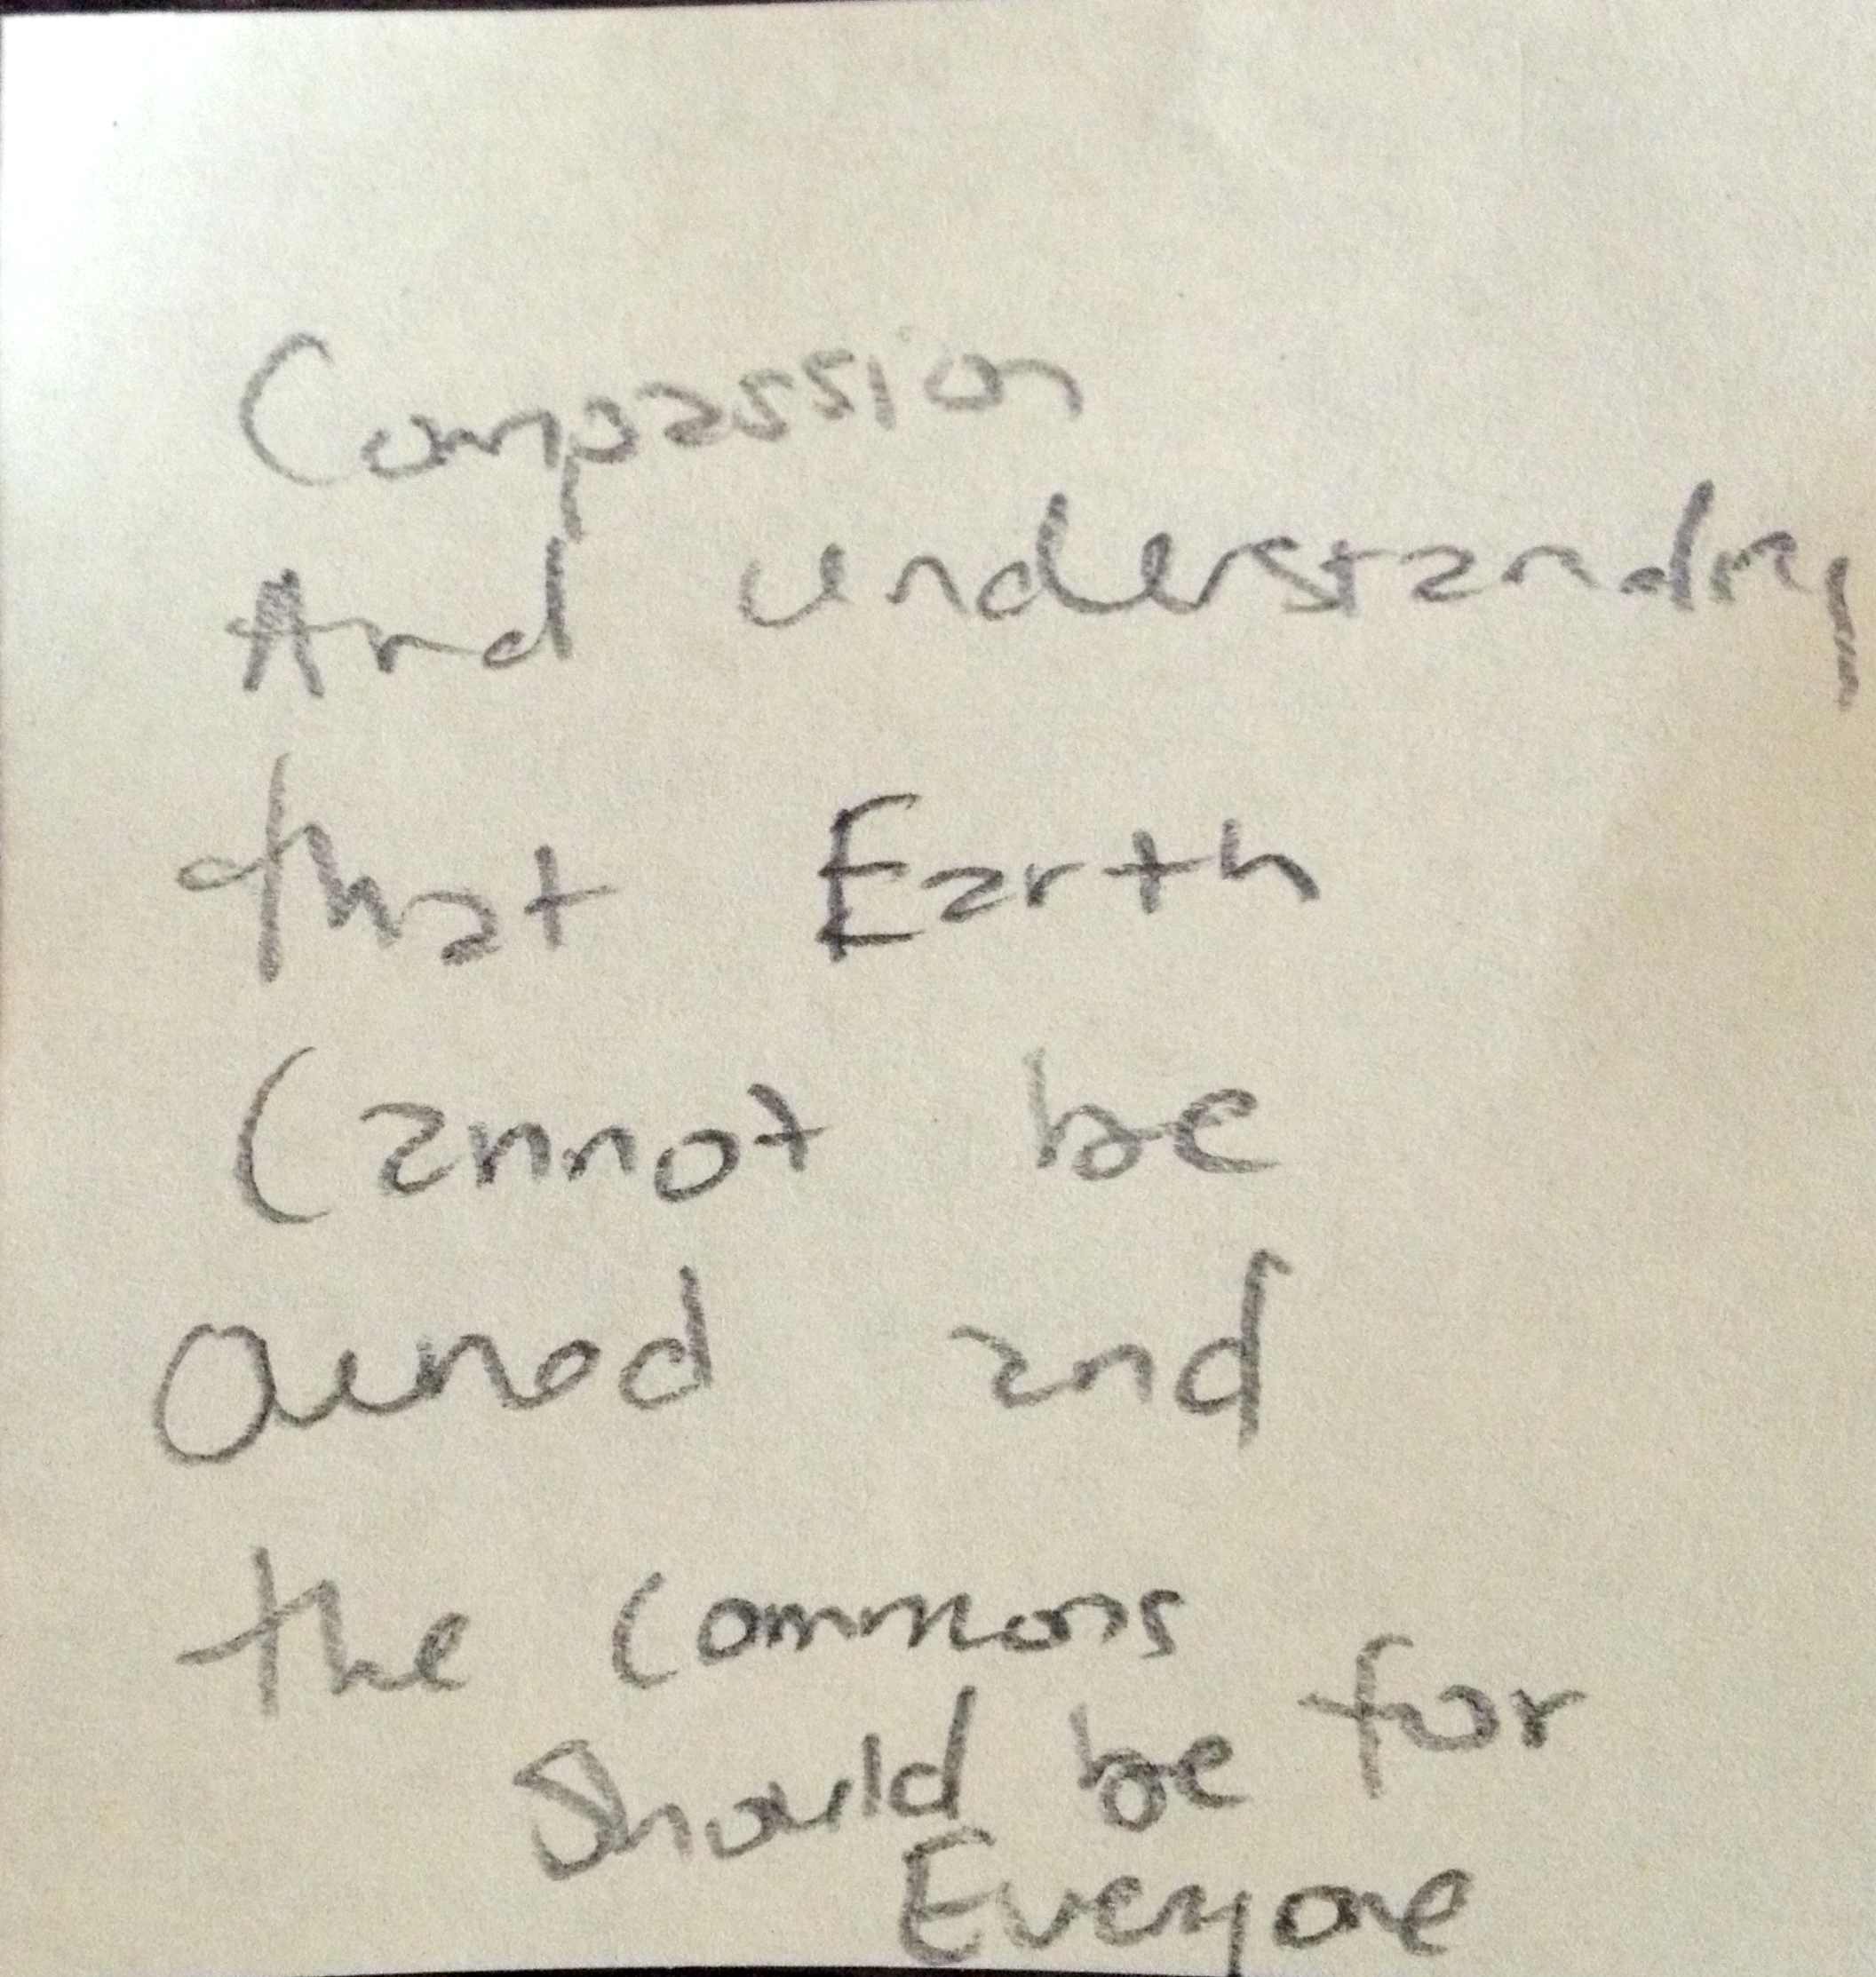 Compassion
And understanding
that Earth
Cannot be
Owned and
the Commons
Should be for
Everyone